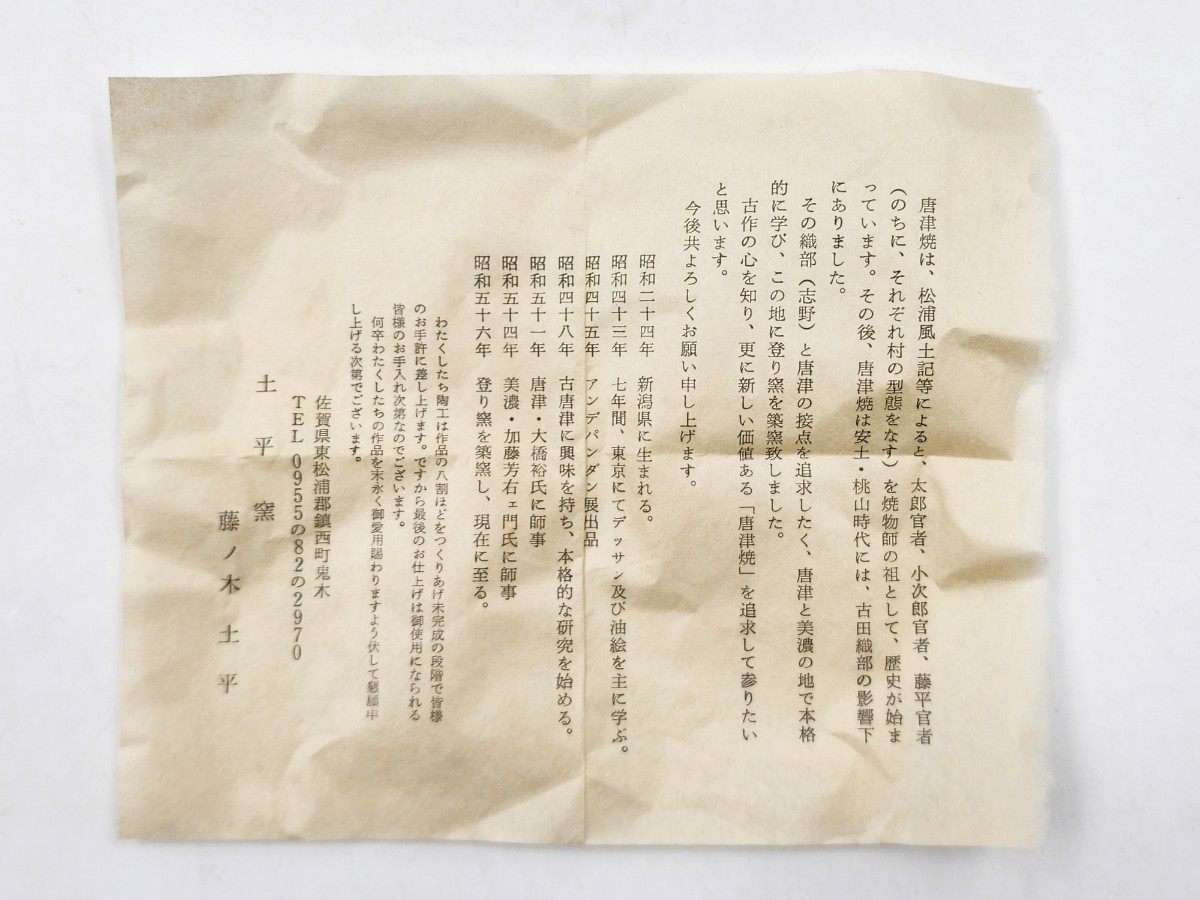 唐津焼は、松浦風土記等によると、太郎官者、小次郎官者、藤平官者
(のちに、それぞれ村の型態をなす)を焼物師の祖として、歴史が始ま
っています。その後、唐津焼は安土・桃山時代には、古田織部の影響下
にありました。
その織部(志野)と唐津の接点を追求したく、唐津と美濃の地で本格
的に学び、この地に登り窯を築窯致しました。
古作の心を知り、更に新しい価値ある「唐津焼」を追求して参りたい
と思います。
今後共よろしくお願い申し上げます。
昭和二十四年 新潟県に生まれる。
昭和四十三年 七年間、東京にてデッサン及び油絵を主に学ぶ。
昭和四十五年 アンデパンダン展出品
昭和四十八年 古唐津に興味を持ち、本格的な研究を始める。
昭和五十一年 唐津・大橋裕氏に師事
昭和五十四年 美濃・加藤芳右ェ門氏に師事
昭和五十六年 登り窯を築窯し、現在に至る。
わたくしたち陶工は作品の八割ほどをつくりあげ未完成の段階で皆様
のお手許に差し上げます。ですから最後のお仕上げは御使用になられる
皆様のお手入れ次第なのでございます。
何卒わたくしたちの作品を末永く御愛用賜わりますよう伏して懇願申
し上げる次第でございます。
佐賀県東松浦郡鎮西町鬼木
TEL 0955の82の2970
土平窯
藤ノ木土平